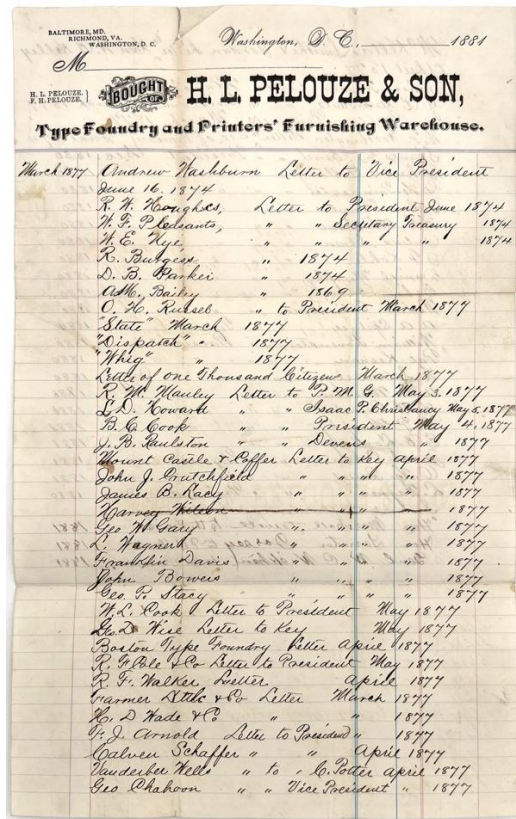 BALTIMORE, MD.
RICHMOND, VA.
WASHINGTON, D. C.
Washington, D. C., 1881
M
H. L. PELOUZE.
F. H. PELOUZE.
BOUGHT OF
H. L. PELOUZE & SON,
Type Foundry and Printers' Furnishing Warehouse.
March 1877 Andrew Washburn Letter to Vice President
June 16. 1874
R. W. Hughes, Letter to President June 1874
W. F. Pleasants, " " Secretary Treasury 1874
W. E. Nye, " " " " 1874
R. Burgess " 1874
D. B. Parker " 1874
A. M. Bailey " 1869
O. H. Russel " to President March 1877
"State" March 1877
"Dispatch" " 1877
"Whig" " 1877
Letter of one Thousand Citizens March 1877
R. W. Mauley Letter to P. M. G. May 3. 1877
L. D. Howard " " Isaac P. Christiancy May 5, 1877
B. C. Cook " " President May 4, 1877
J. B. Paulston " " Devens " 1877
Mount Castle & Coffer Letter to Key April 1877
John J. Crutchfield " " " " 1877
James B. Lacy " " " " 1877
Harvey Wilson " " " 1877
Geo W. Gary " " " " 1877
L. Wagner " " " " 1877
Franklin Davis " " " " 1877
John Bowers " " " " 1877
Geo. P. Stacy " " " " 1877
W. L. Cook Letter to President May 1877
Geo. D. Wise Letter to Key May 1877
Boston Type Foundry Letter April 1877
R. F. Cole & Co Letter to President May 1877
R. F. Walker Letter April 1877
Farmer & Co Letter March 1877
H. D Wade & Co " " 1877
F. J. Arnold Letter to President " 1877
Calven Schaffer " " April 1877
Vanderber Wells " to C. Potter April 1877
Geo Chahoon " " Vice President " 1877